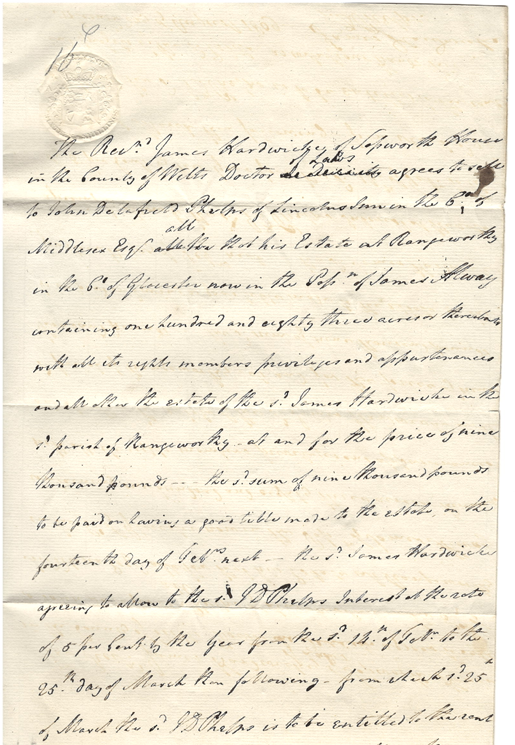 16
The Rev.d James Hardwicke of Sopworth House
of Laws
in the County of Wilts Doctor agrees to sell
to John Delafield Phelps of Lincolns Inn in the Co. of
all
Middlesex Esq. that his Estate at Rangeworthy
in the Co. of Glocester now in the Poss.n of James Alway
containing one hundred and eighty three acres or thereabouts
with all its rights members priviledges and appurtenances
and all other the estate of the s.d James Hardwicke in the
s.d parish of Rangeworthy — at and for the price of nine
thousand pounds — — the s.d sum of nine thousand pounds
to be paid on having a good title made to the estate, on the
fourteenth day of Feb.ry next — the s.d James Hardwicke
agreeing to allow to the s.d J D Phelps Interest at the rate
of 5 per Cent by the Year from the s.d 14.th of Feb.y to the
25.th day of March then following — from which s.d 25.th
of March the s.d J D Phelps is to be entitled to the rent